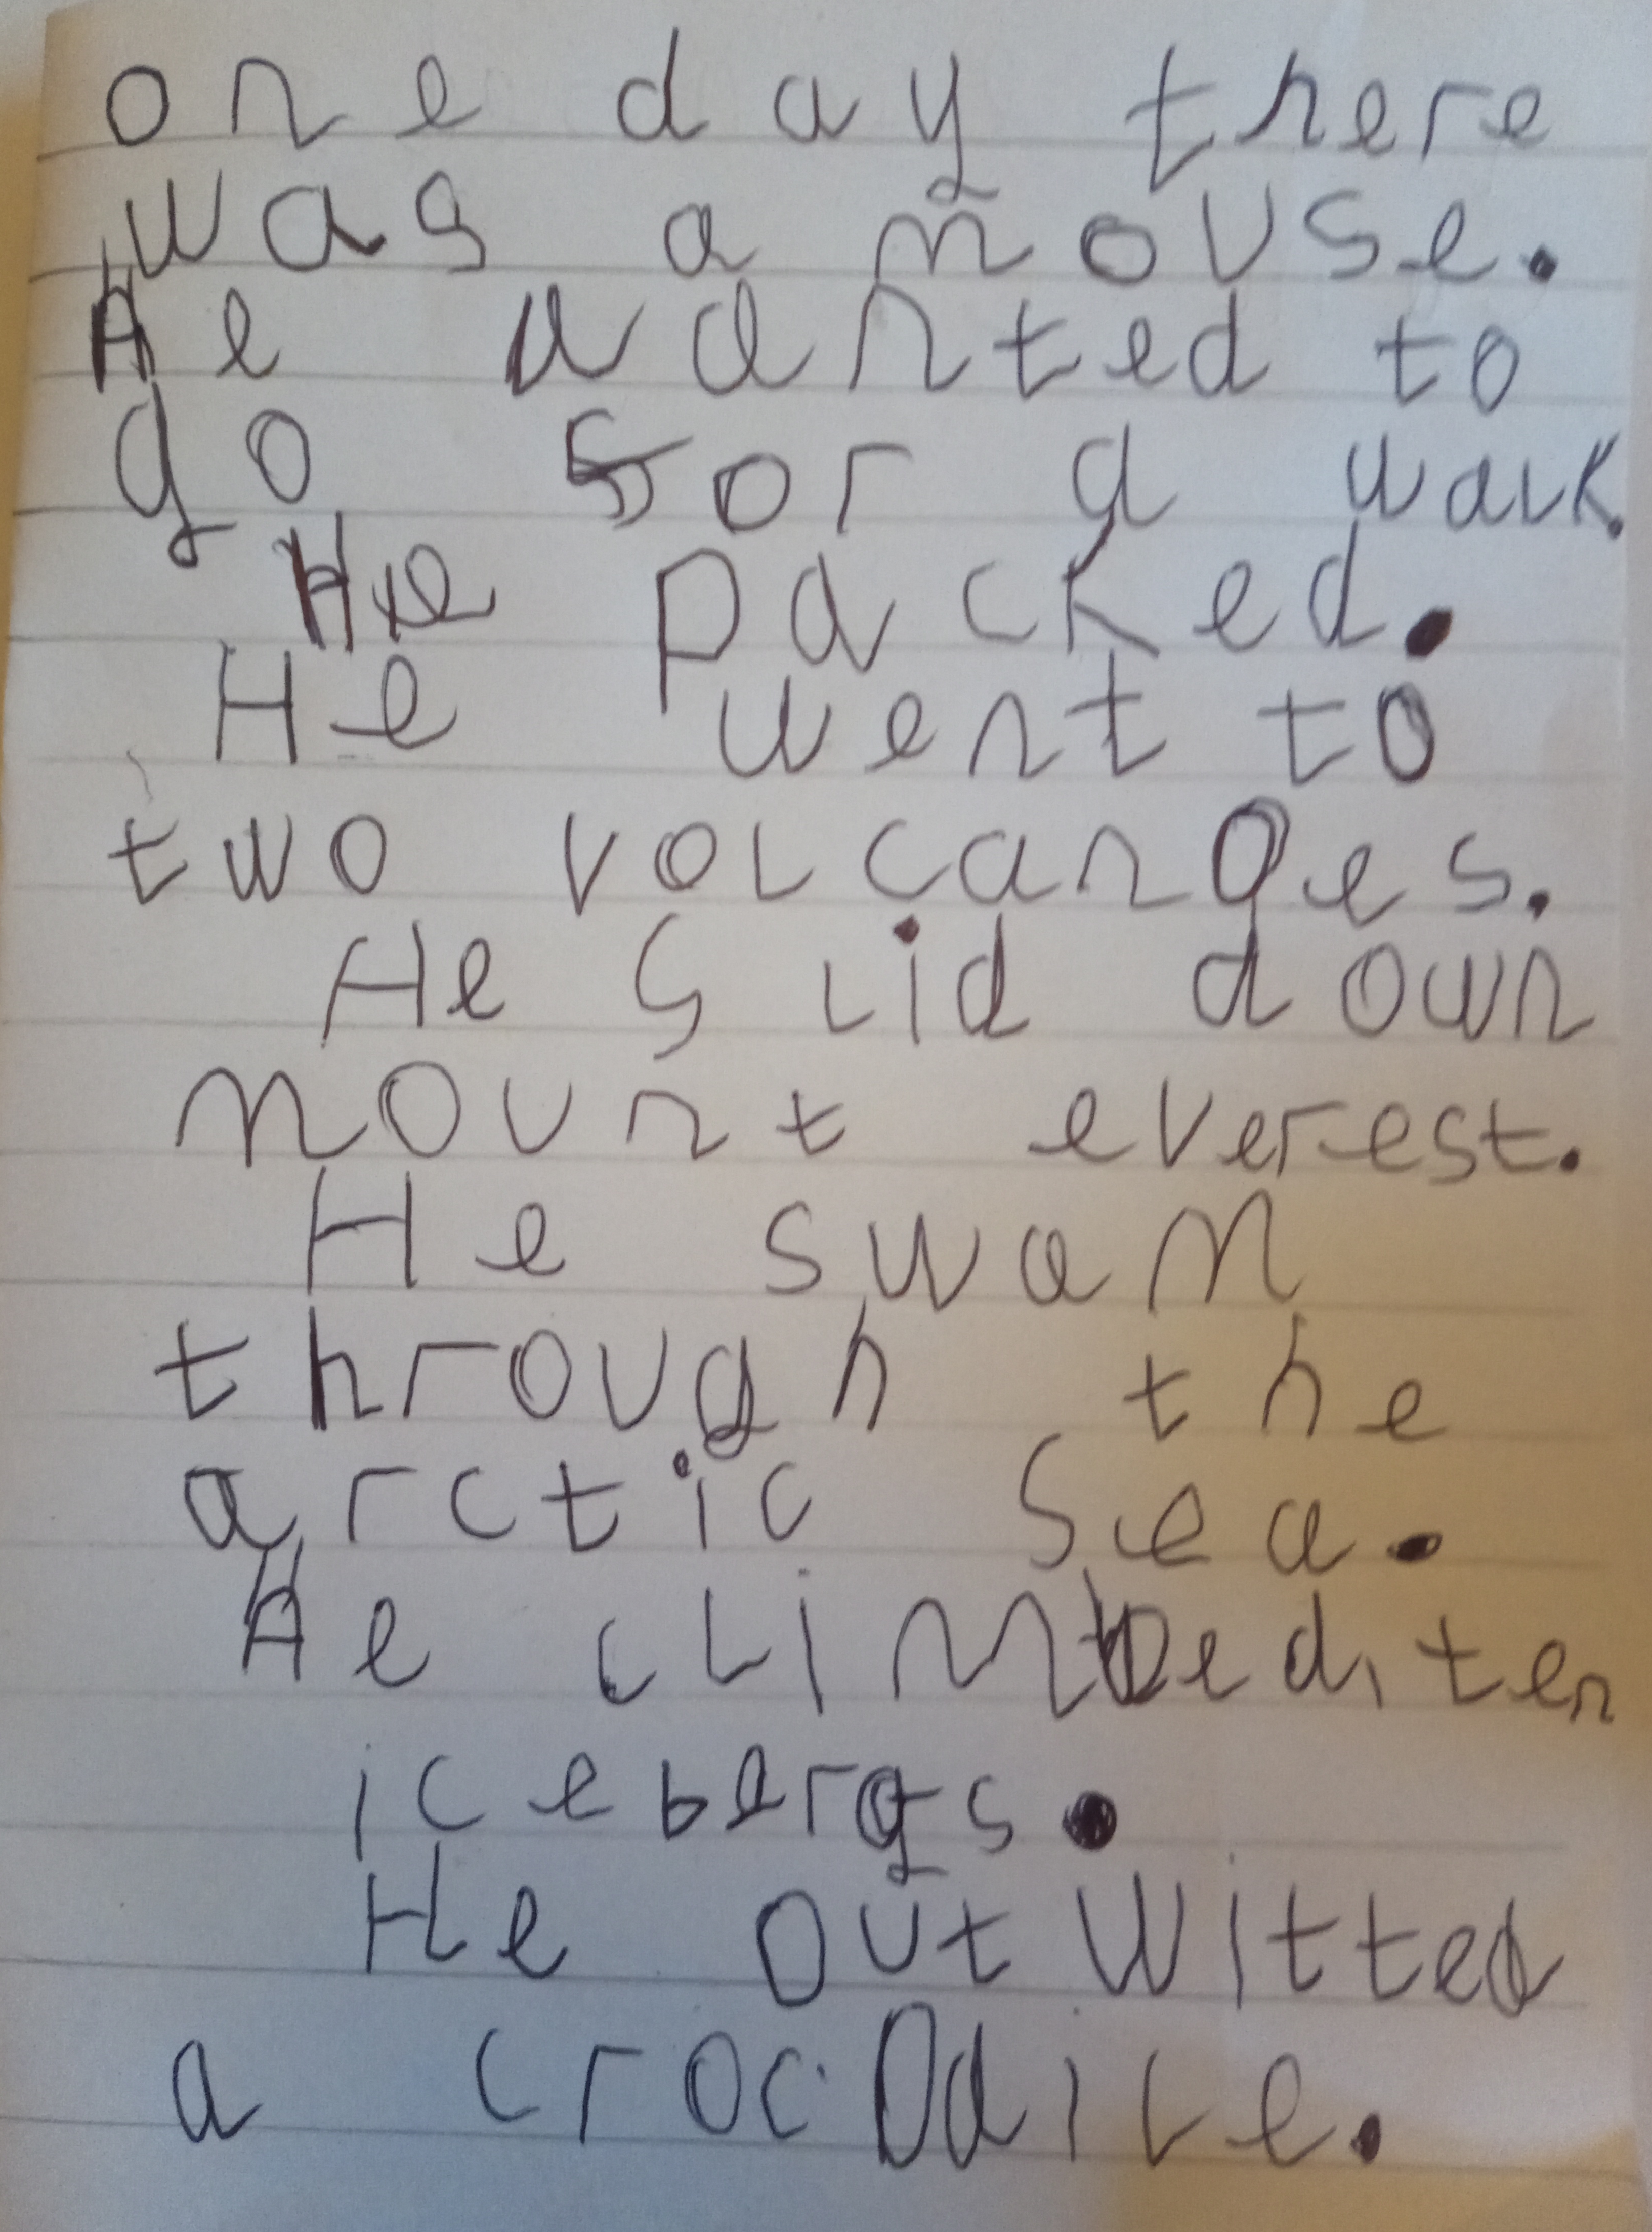 one day there
was a mouse.
He wanted to
go for a walk.
He packed.
He went to
two volcanoes.
He slid down
mount everest.
He swam
through the
arctic sea.
He climbed ten
icebergs.
He out witted
a crocodile.